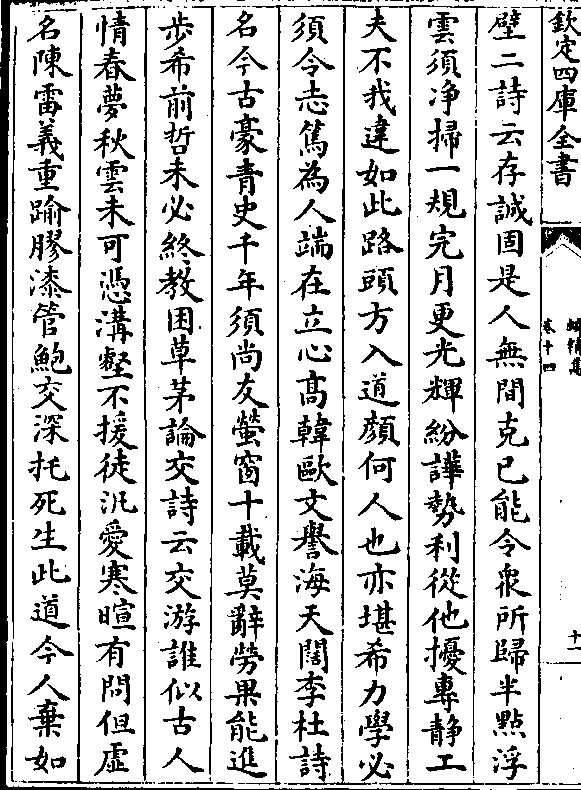 欽定四庫全書
蟫精雋
卷十四
十一
壁二詩云存誠固是人無間克已能令衆所歸半點浮
雲須净掃一規完月更光輝紛譁勢利從他擾專静工
夫不我違如此路頭方入道顔何人也亦堪希力學必
須令志篤為人端在立心高韓歐文譽海天闊李杜詩
名今古豪青史千年須尚友螢窗十載莫辭勞果能進
步希前哲未必終教困草茅論交詩云交游誰似古人
情春夢秋雲未可憑溝壑不援徒汎愛寒暄有問但虚
名陳雷義重踰膠漆管鮑交深托死生此道今人棄如